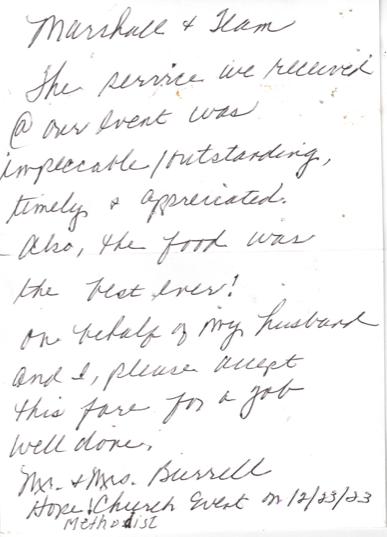 Marshall & Team
The service we received
@ our event was
impeccable/outstanding,
timely & appreciated.
Also, the food was
the best ever!
On behalf of my husband
and I, please accept
this fare for a job
well done.
Mr. & Mrs. Burrell
Hope Church Event on 12/23/23
Methodist